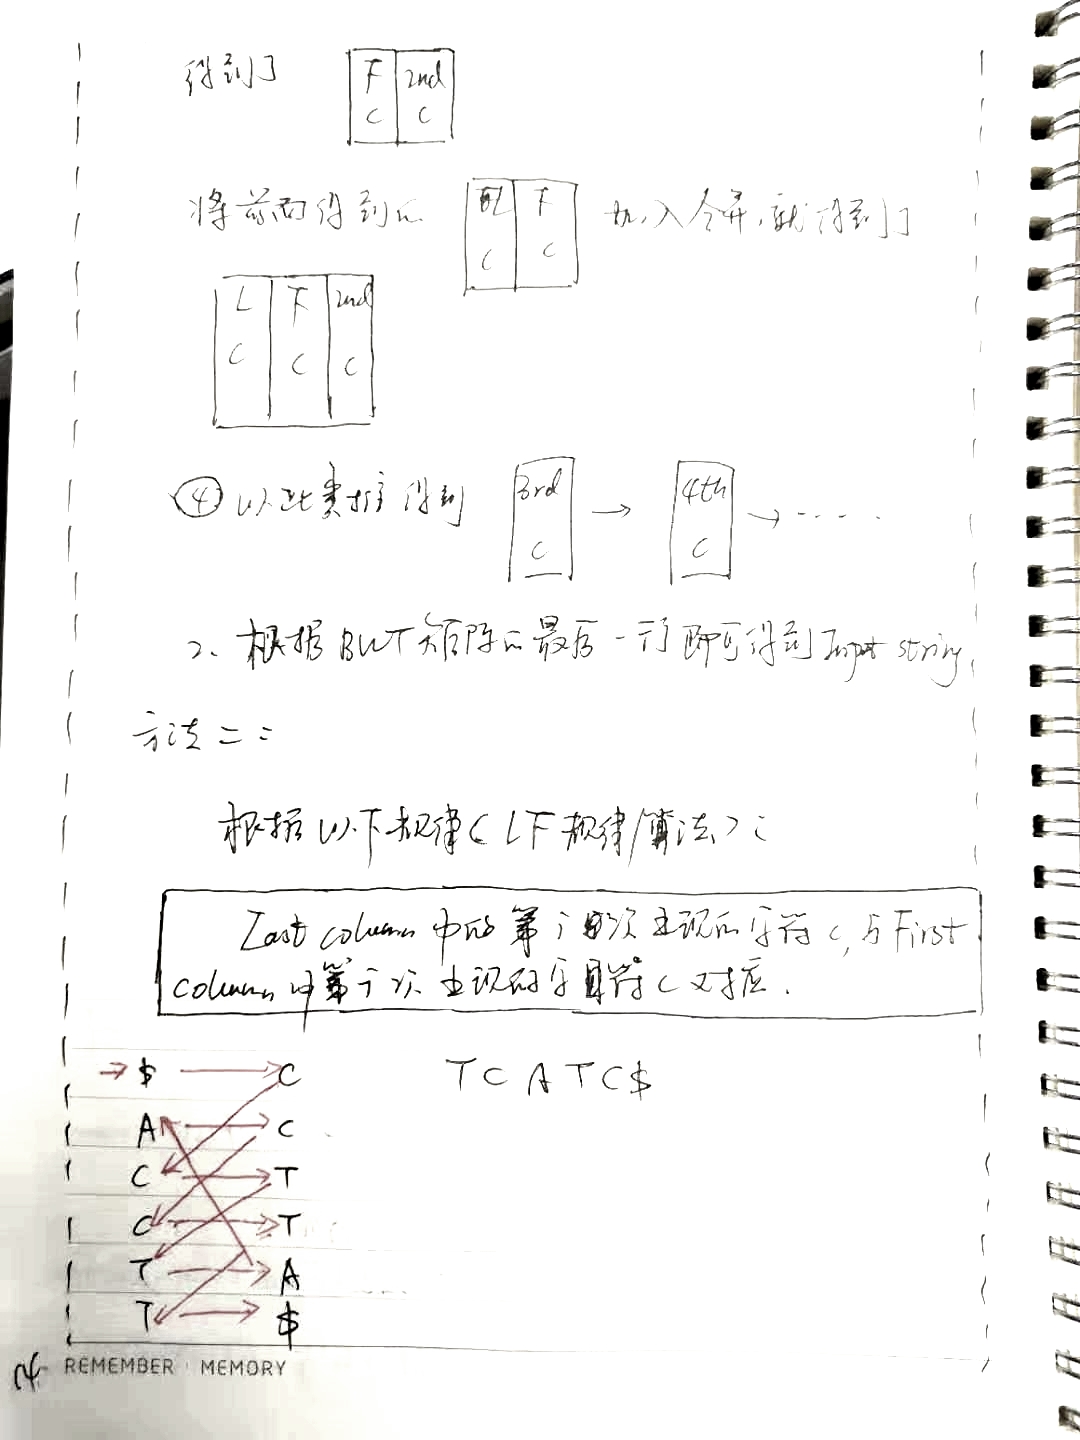 得到了 F C 2nd C
将前面得到的 L C F C 加入合并,就得到了
L C F C 2nd C
④ 以此类推得到 3rd C → 4th C → ----
2、根据BWT矩阵的最后一行即可得到Input string
方法二:
根据以下规律(LF规律/算法):
Last column中的第i次出现的字符c,与First
column中第i次出现的字符c对应.
→ $ → C TCATC$
A → C
C → T
C → T
T → A
T → $
REMEMBER MEMORY